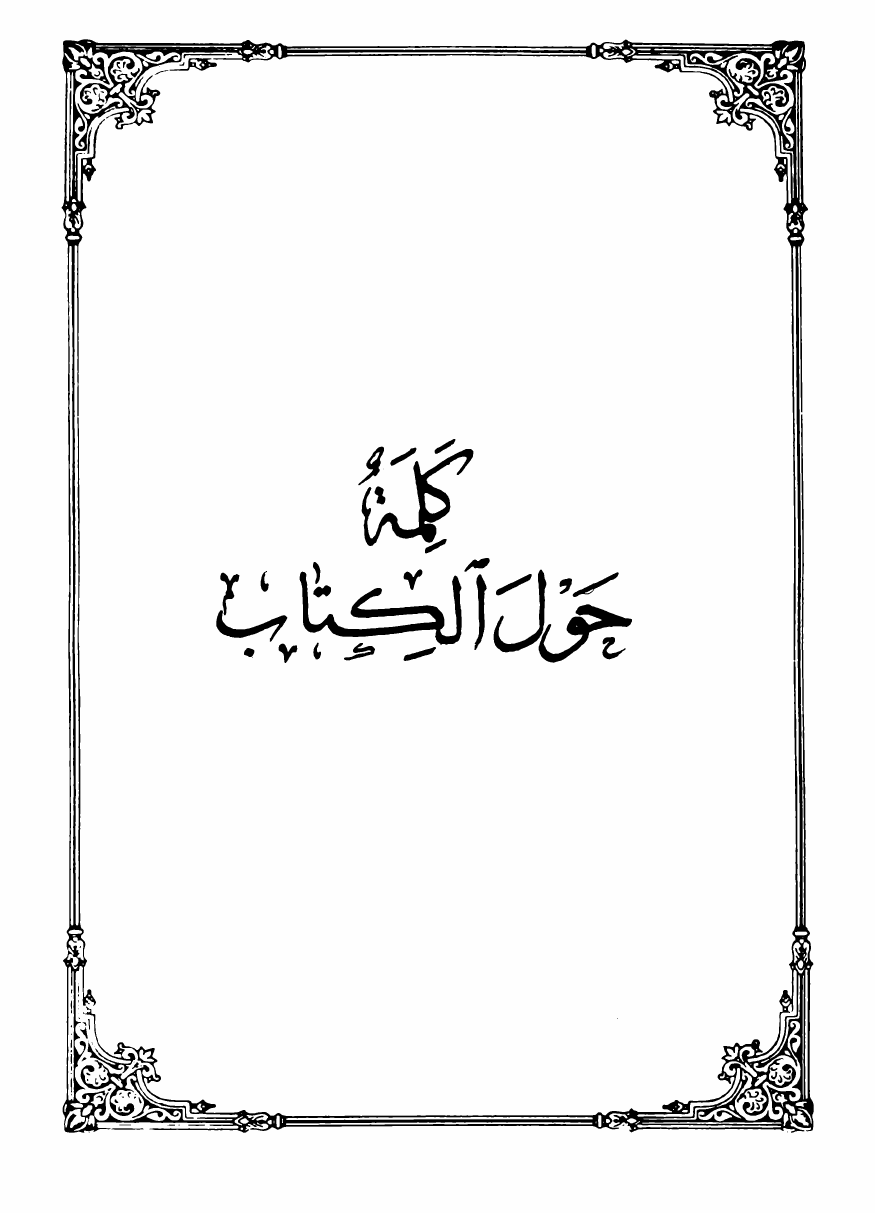 كَلِمَةٌ
حَوْلَ ٱلْكِتَابِ